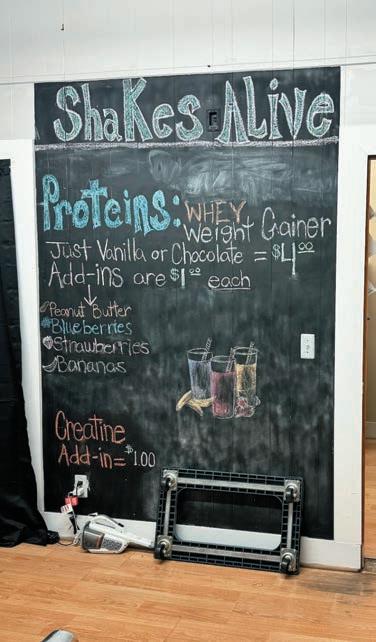 ShaKes ALive
Proteins: WHEY
Weight Gainer
Just Vanilla or Chocolate = $4.00
Add-ins are $1.00 each
Peanut Butter
Blueberries
Strawberries
Bananas
Creatine
Add-in = $1.00